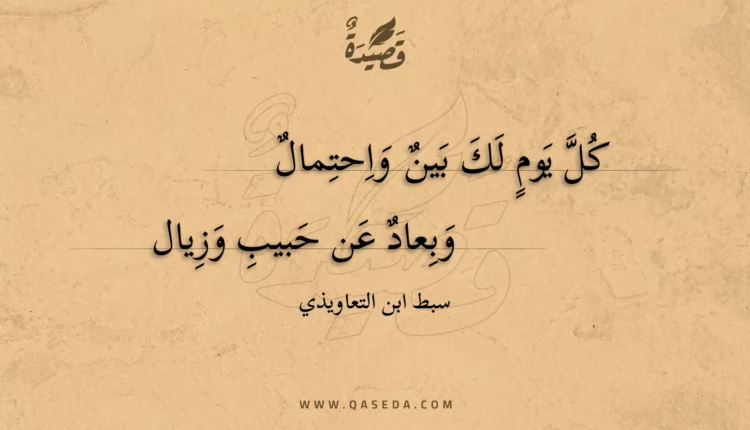 قَصِيدَةٌ
كُلَّ يَومٍ لَكَ بَينٌ وَاِحتِمالٌ
وَبِعادٌ عَن حَبيبِ وَزِيال
سبط ابن التعاويذي
WWW.QASEDA.COM